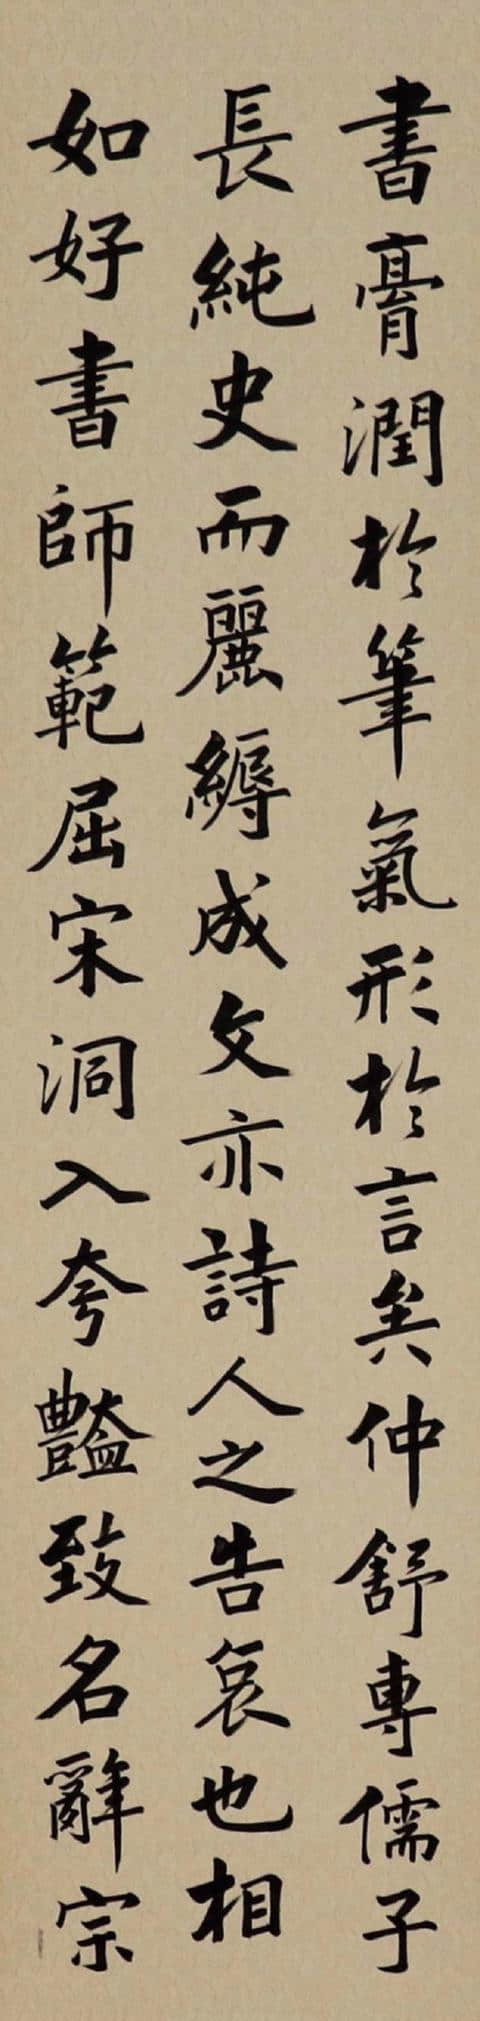 書膏潤於筆氣形於言矣仲舒專儒子
長純史而麗縟成文亦詩人之告哀也相
如好書師範屈宋洞入夸豔致名辭宗